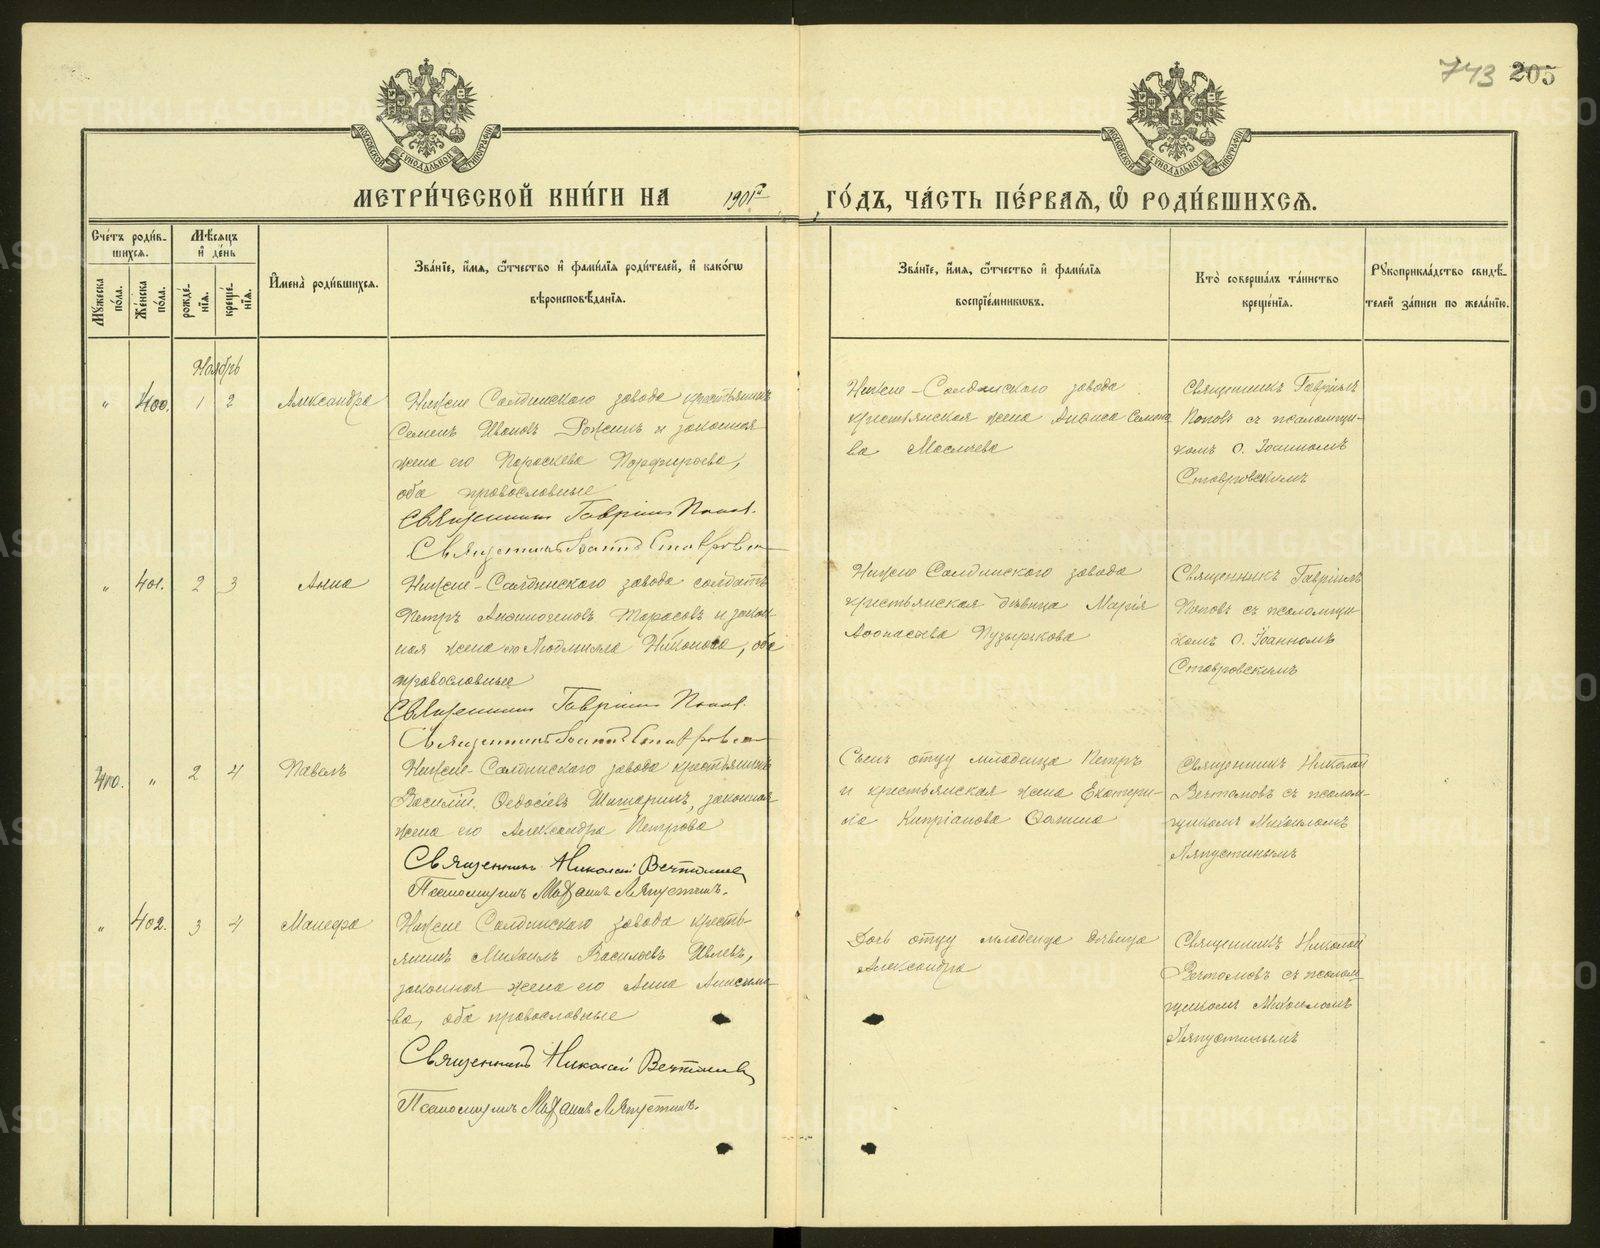 743 205
МЕТРИ́ЧЕСКОЙ КНИ́ГИ НА 1901й ГО́ДЪ, ЧА́СТЬ ПЕ́РВАЯ, Ѽ РОДИ́ВШИХСЯ.
Сче́тъ роди́вшихся.
Мѣ́сяцъ и де́нь
Му́жеска по́ла.
Же́нска по́ла.
рожде́нїя.
креще́нїя.
Имена̀ роди́вшихся.
Зва́нїе, и́мя, ѻ҆́тчество и фами́лїя роди́телей, и како́гѡ
вѣроисповѣ́данїя.
Зва́нїе, и́мя, ѻ҆́тчество и фами́лїя
воспрїе́мниковъ.
Кто̀ соверша́лъ та́инство
креще́нїя.
Рꙋкоприкла́дство свидѣ́-
телей за́писи по жела́нїю.
Ноябрь
" 400. 1 2 Александра
Нижне Салдинскаго завода крестьянинъ
Семенъ Ивановъ и законная
жена его Параскева Порфирьева,
оба православные
Священникъ Гавріилъ Поповъ.
Священникъ Іоаннъ Ставровскій
Нижне-Салдинскаго завода
крестьянская жена Аниса Семено
ва Маслиева
Священникъ Гавріилъ
Поповъ съ псаломщи-
комъ о. Іоанномъ
Ставровскимъ
" 401. 2 3 Анна
Нижне-Салдинскаго завода солдатъ
Петръ Афиногеновъ Тарасовъ и закон
ная жена его Людмила Никонова, оба
православные
Священникъ Гавріилъ Поповъ.
Священникъ Іоаннъ Ставровскій
Нижне Салдинскаго завода
крестьянская дѣвица Марія
Аѳонасьева Пузырькова
Священникъ Гавріилъ
Поповъ съ псаломщи
комъ о. Іоанномъ
Ставровскимъ
410. " 2 4 Павелъ
Нижне-Салдинскаго завода крестьянинъ
Василій Ѳедосіевъ законная
жена его Александра Петрова
Священникъ Николай Вечтомовъ
Псаломщикъ Михаилъ Ляпустинъ.
Сынъ отцу младенца Петръ
и крестьянская жена Екатери-
на Кипріанова
Священникъ Николай
Вечтомовъ съ псалом-
щикомъ Михаиломъ
Ляпустинымъ
" 402. 3 4 Манефа
Нижне Салдинскаго завода кресть-
янинъ Михаилъ Васильевъ Ивлевъ,
законная жена его Анна Анисимо
ва, оба православные
Священникъ Николай Вечтомовъ
Псаломщикъ Михаилъ Ляпустинъ.
Дочь отцу младенца дѣвица
Александра
Священникъ Николай
Вечтомовъ съ псалом
щикомъ Михаиломъ
Ляпустинымъ